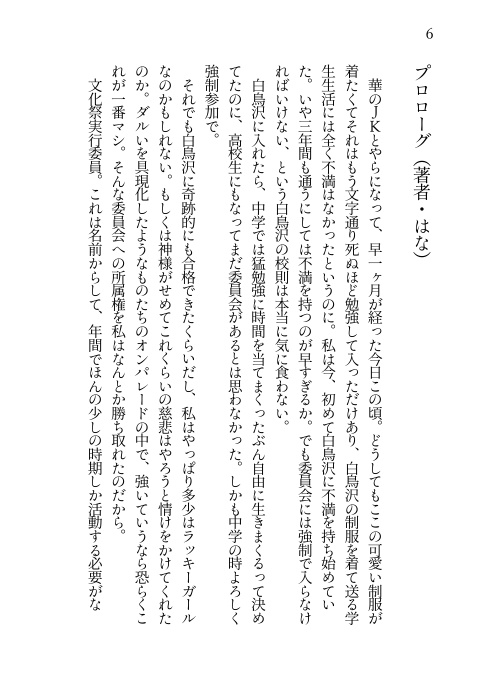 6
プロローグ（著者・はな）
　華のＪＫとやらになって、早一ヶ月が経った今日この頃。どうしてもここの可愛い制服が
着たくてそれはもう文字通り死ぬほど勉強して入っただけあり、白鳥沢の制服を着て送る学
生生活には全く不満はなかったというのに。私は今、初めて白鳥沢に不満を持ち始めてい
た。いや三年間も通うにしては不満を持つのが早すぎるか。でも委員会には強制で入らなけ
ればいけない、という白鳥沢の校則は本当に気に食わない。
　白鳥沢に入れたら、中学では猛勉強に時間を当てまくったぶん自由に生きまくるって決め
てたのに、高校生にもなってまだ委員会があるとは思わなかった。しかも中学の時よろしく
強制参加で。
　それでも白鳥沢に奇跡的にも合格できたくらいだし、私はやっぱり多少はラッキーガール
なのかもしれない。もしくは神様がせめてこれくらいの慈悲はやろうと情けをかけてくれた
のか。ダルいを具現化したようなものたちのオンパレードの中で、強いていうなら恐らくこ
れが一番マシ。そんな委員会への所属権を私はなんとか勝ち取れたのだから。
　文化祭実行委員。これは名前からして、年間でほんの少しの時期しか活動する必要がな